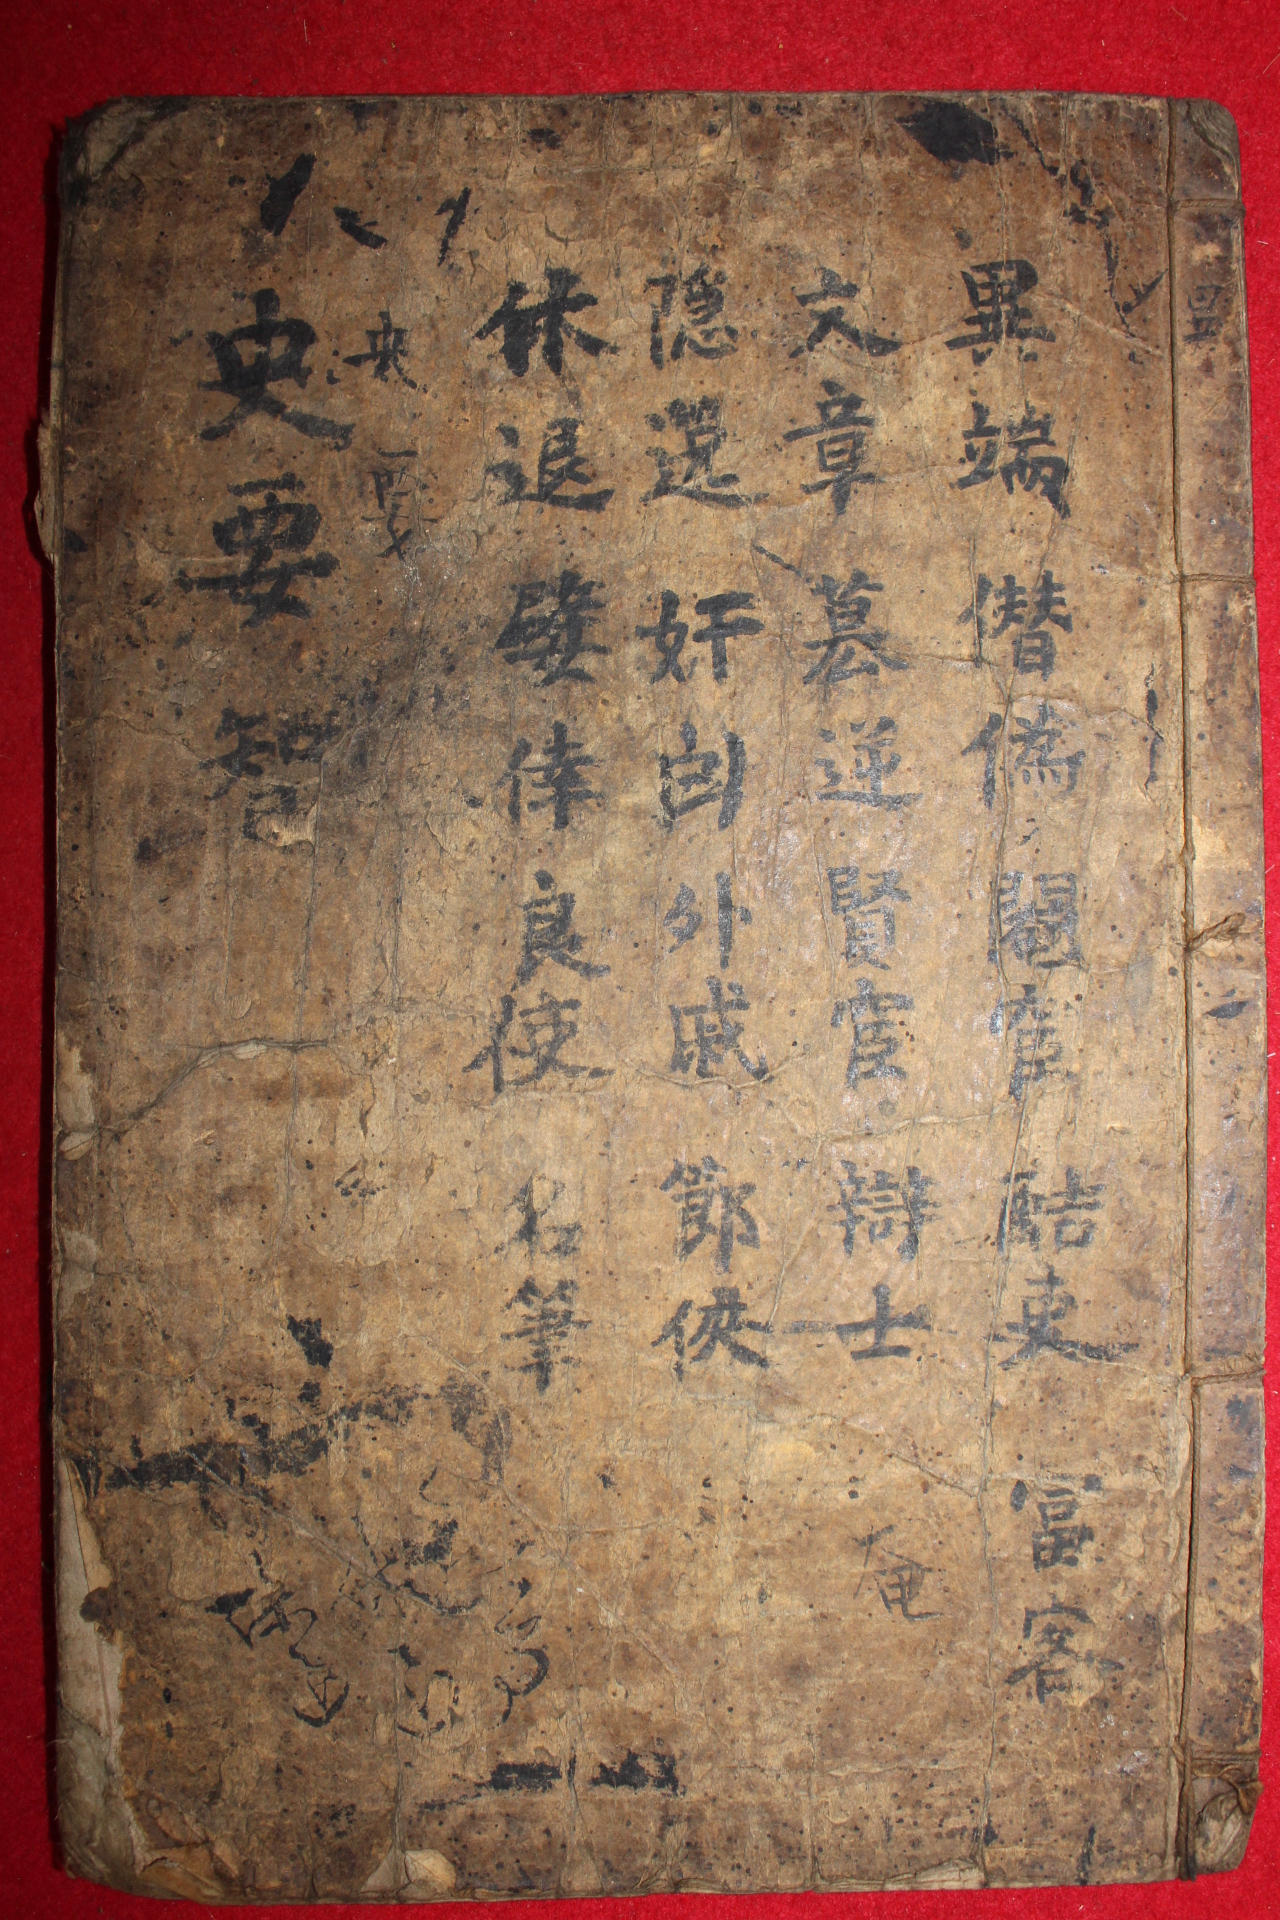 異端 僭偽 閹宦 酷吏 富客
文章 篡逆 賢宦 辯士
奄
隠逸 奸凶 外戚 節俠
休退 嬖倖 良使 名筆
史要
史要 智